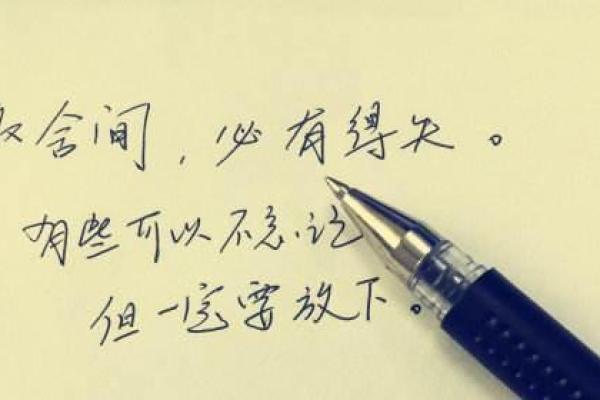 取舍间，必有得失。
有些可以不忘记
但一定要放下。